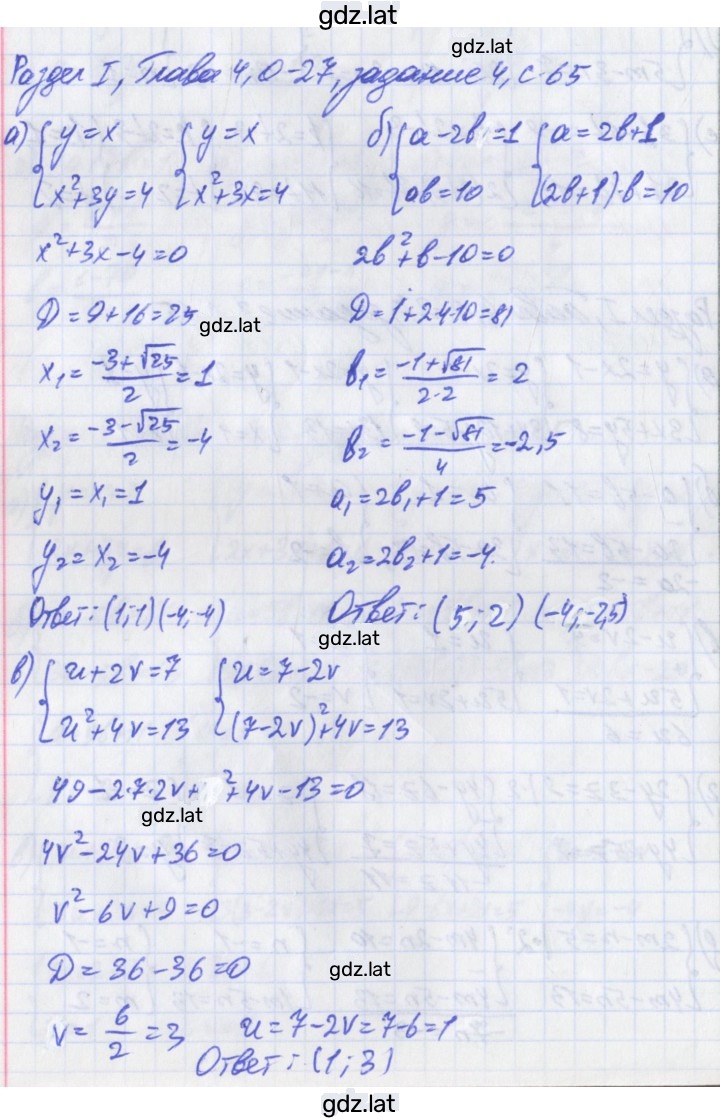 gdz.lat
gdz.lat
Раздел I, Глава 4, О-27, задание 4, с 65
а) { y = x { y = x
x²+3y=4 x²+3x=4
x²+3x-4=0
D=9+16=25
gdz.lat
x₁ = (-3+√25)/2 = 1
x₂ = (-3-√25)/2 = -4
y₁ = x₁ = 1
y₂ = x₂ = -4
Ответ: (1; 1) (-4; -4)
б) { a-2b=1 { a=2b+1
ab=10 (2b+1)·b=10
2b²+b-10=0
D=1+2·4·10=81
b₁ = (-1+√81)/(2·2) = 2
b₂ = (-1-√81)/4 = -2,5
a₁=2b₁+1=5
a₂=2b₂+1=-4.
Ответ: (5; 2) (-4; -2,5)
gdz.lat
в) { u+2v=7 { u=7-2v
u²+4v=13 (7-2v)²+4v=13
49-2·7·2v+ ²+4v-13=0
gdz.lat
4v²-24v+36=0
v²-6v+9=0
D=36-36=0
gdz.lat
v = 6/2 = 3 u=7-2v=7-6=1
Ответ: (1; 3)
gdz.lat